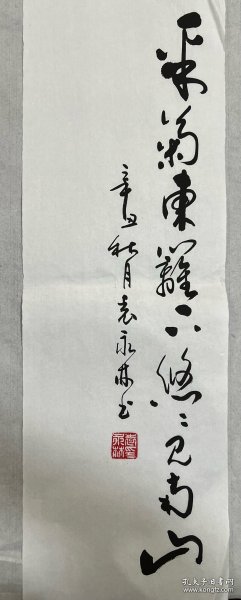 采菊東籬下悠〻见南山
辛丑秋月袁永林书
孔夫子旧书网